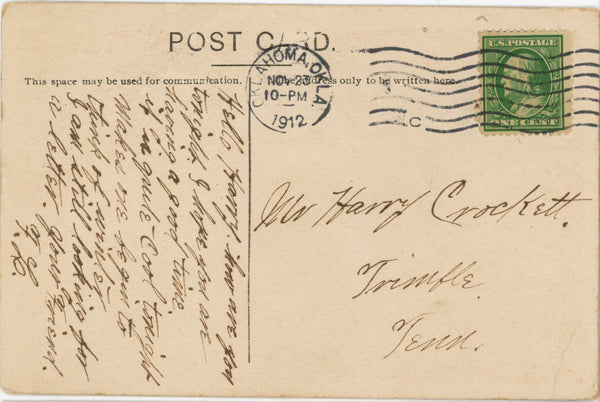 POST CARD.
This space may be used for communication.
Name and address only to be written here.
OKLAHOMA, OKLA.
NOV 23
10-PM
1912
C
U.S. POSTAGE
ONE CENT
Mr Harry Crockett.
Trimble.
Tenn.
Hello Harry how are you
tonight. I hope you are
having a good time.
it is quite cool tonight
Makes one begin to
think of winter.
I am still looking for
a letter. your friend.